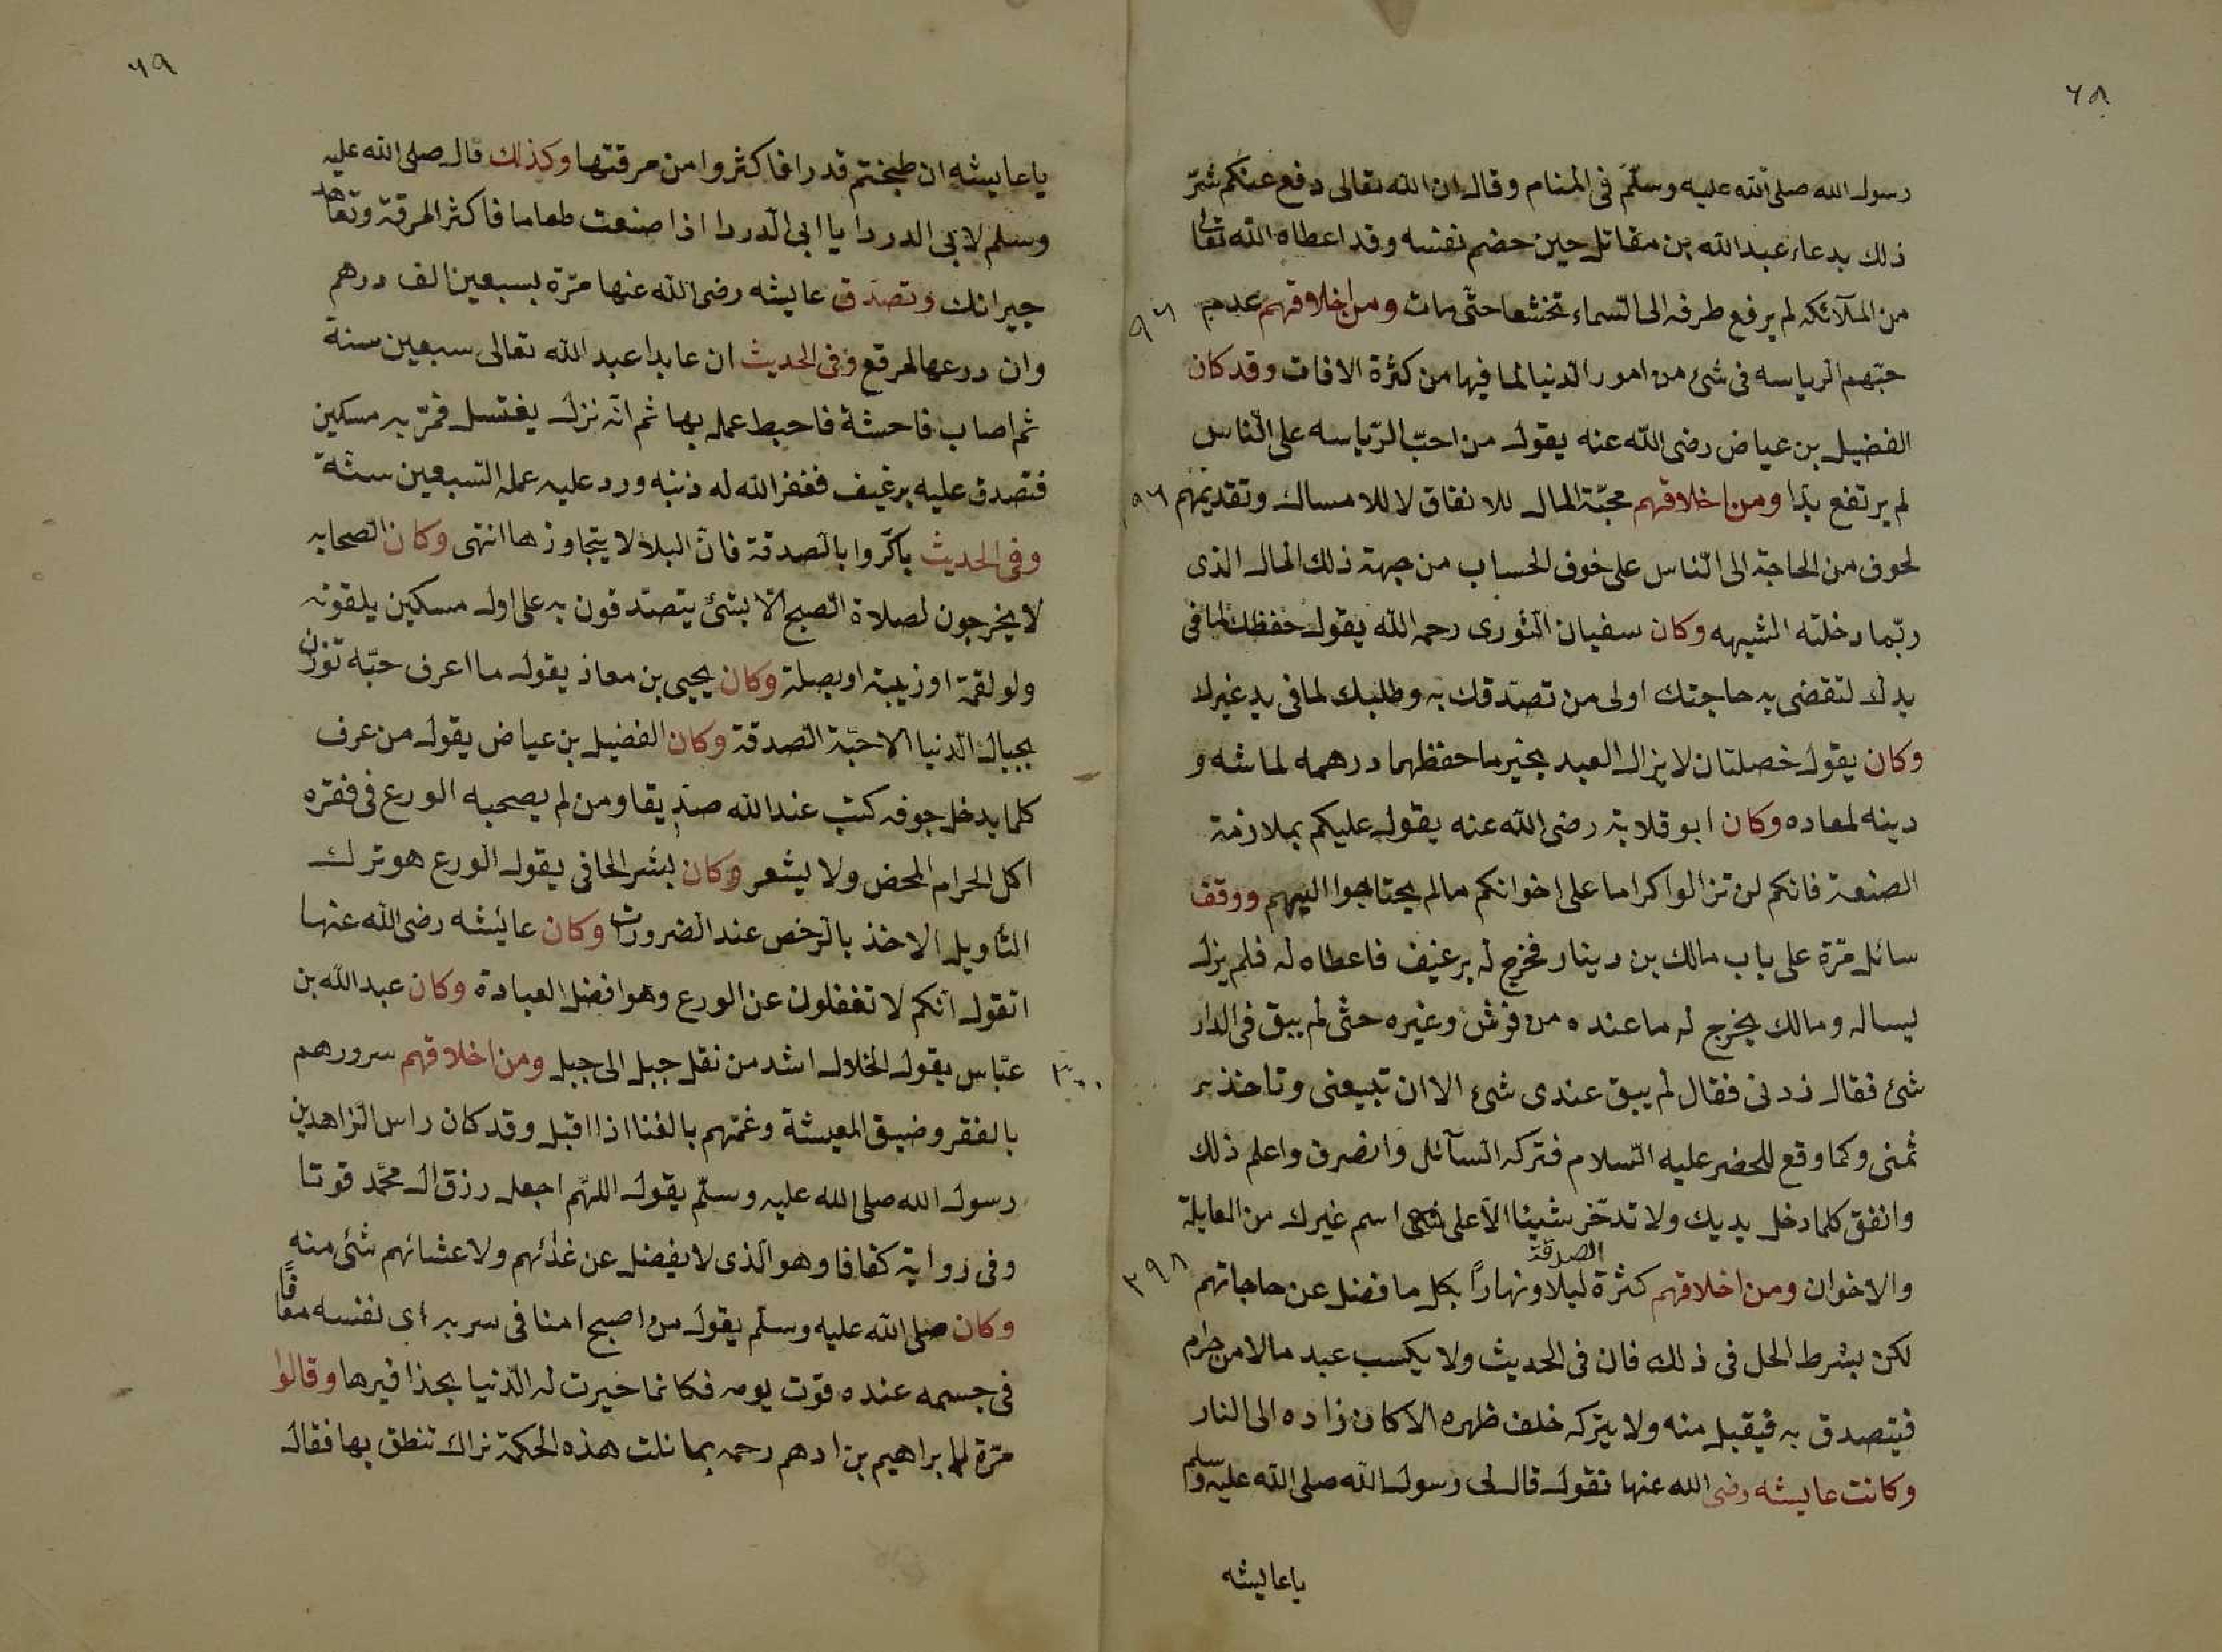 ٦٨
رسول الله صلى الله عليه وسلّم فى المنام وقال ان الله تعالى دفع عنكم شرّ
ذلك بدعاء عبد الله بن مقاتل حين هضم نفسه وقد اعطاه الله تعالى
من الملآئكه لم يرفع طرفه الى السماء تخشعا حتّى مات ومن اخلاقهم عدم
حبّهم الرياسه فى شئ من امور الدنيا لما فيها من كثرة الافات وقد كان
الفضيل بن عياض رضى الله عنه يقول من احبّ الرّياسه على النّاس
لم يرتفع ابدا ومن اخلاقهم محبّة المال للانفاق لا للامساك وتقديمهم
لخوف من الحاجة الى النّاس على خوف الحساب من جهة ذلك المال الذى
ربّما دخلته الشبهه وكان سفيان الثورى رحمه الله يقول حفظك لما فى
يدك لتقضى به حاجتك اولى من تصدّقك به وطلبك لما فى يد غيرك
وكان يقول خصلتان لا يزال العبد بخير ما حفظهما درهمه لمعاشه و
دينه لمعاده وكان ابو قلابة رضى الله عنه يقول عليكم بملازمة
الصنعة فانكم لن تزالوا كراما على اخوانكم مالم يحتاجوا اليهم ووقف
سائل مرّة على باب مالك بن دينار فخرج له برغيف فاعطاه له فلم يزل
يساله ومالك يخرج له ما عنده من فرش وغيره حتّى لم يبق فى الدار
شئ فقال زدنى فقال لم يبق عندى شئ الا ان تبيعنى وتاخذ
ثمنى وكما وقع للخضر عليه السّلام فتركه السآئل وانصرف واعلم ذلك
وانفق كلما دخل يديك ولا تدخّر شيئا الّا على اسم غيرك من العايلة
والاخوان ومن اخلاقهم كثرة الصدقة ليلا ونهاراً بكل ما فضل عن حاجاتهم
٣٩٨
لكن بشرط الحل فى ذلك فان فى الحديث ولا يكسب عبد مالا من حرام
فيتصدق به فيقبل منه ولا يتركه خلف ظهره الا كان زاده الى النار
وكانت عايشه رضى الله عنها تقول قال لى رسول الله صلى الله عليه وسلم
يا عايشه
٦٩
يا عايشه ان طبختم قدرا فاكثروا من مرقتها وكذلك قال صلى الله عليه
وسلم لابى الدردا يا ابى الدردا اذا صنعت طعاما فاكثر المرقة وتعاهد
جيرانك وتصدّق عايشه رضى الله عنها مرّة بسبعين الف درهم
وان درعها لمرقع وفى الحديث ان عابدا عبد الله تعالى سبعين سنة
ثم اصاب فاحشة فاحبط عمله بها ثم انّه نزل يغتسل فمرّ به مسكين
فتصدق عليه برغيف فغفر الله له ذنبه ورد عليه عمله السبعين سنة
وفى الحديث باكروا بالصدقة فانّ البلا لا يتجاوزها انتهى وكان الصحابه
لا يخرجون لصلاة الصبح الّا بشئ يتصدّقون به على اول مسكين يلقونه
ولو لقمة او زبيبة او بصلة وكان يحيى بن معاذ يقول ما اعرف حبّه توزن
بجبال الدنيا الا حبّة الصدقة وكان الفضيل بن عياض يقول من عرف
كلما يدخل جوفه كتب عند الله صدّيقا ومن لم يصحبه الورع فى فقره
اكل الحرام المحض ولا يشعر وكان بشر الحافى يقول الورع هو ترك
التأويل الاخذ بالرّخص عند الضرورات وكان عائشه رضى الله عنها
اتقول انكم لا تغفلون عن الورع وهو افضل العبادة وكان عبد الله بن
عبّاس يقول الحلال اشد من نقل جبل الى جبل ومن اخلاقهم سرورهم
بالفقر وضيق المعيشة وغمّهم بالغنا اذا اقبل وقد كان راس الزاهدين
رسول الله صلى الله عليه وسلّم يقول اللهّم اجعل رزق ال محمّد قوتا
وفى رواية كفافا وهو الذى لا يفضل عن غدائهم ولا عشائهم شئ منه
وكان صلى الله عليه وسلّم يقول من اصبح امنا فى سربه اى نفسه معافًا
فى جسمه عنده قوت يومه فكانما حيزت له الدّنيا بحذافيرها وقالوا
مرّة لابراهيم بن ادهم رحمه بما نلت هذه الحكمة نراك تنطق بها فقال